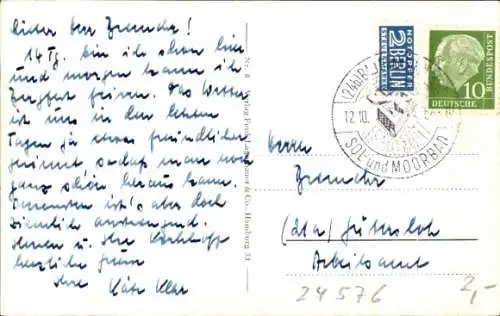 Lieber Herr Bremehr!
14 Tg. bin ich schon hier
und morgen kann ich
Bergfest feiern. Das Wetter
ist uns in den letzten
Tagen ja etwas freundlicher
gesinnt sodaß man noch
ganz schön heraus kann.
Ansonsten ist's aber doch
ziemlich anstrengend.
Ihnen u. Ihre
herzliche Grüsse
Ihre Käte Klar
Nr. 8 Verlag & Co., Hamburg 33
NOTOPFER
2 BERLIN
STEUERMARKE
DEUTSCHE
BUNDESPOST
10
12.10.
SOL- und MOORBAD
Herrn
Bremehr
(21a) Gütersloh
Arbeitsamt
24576
2,-